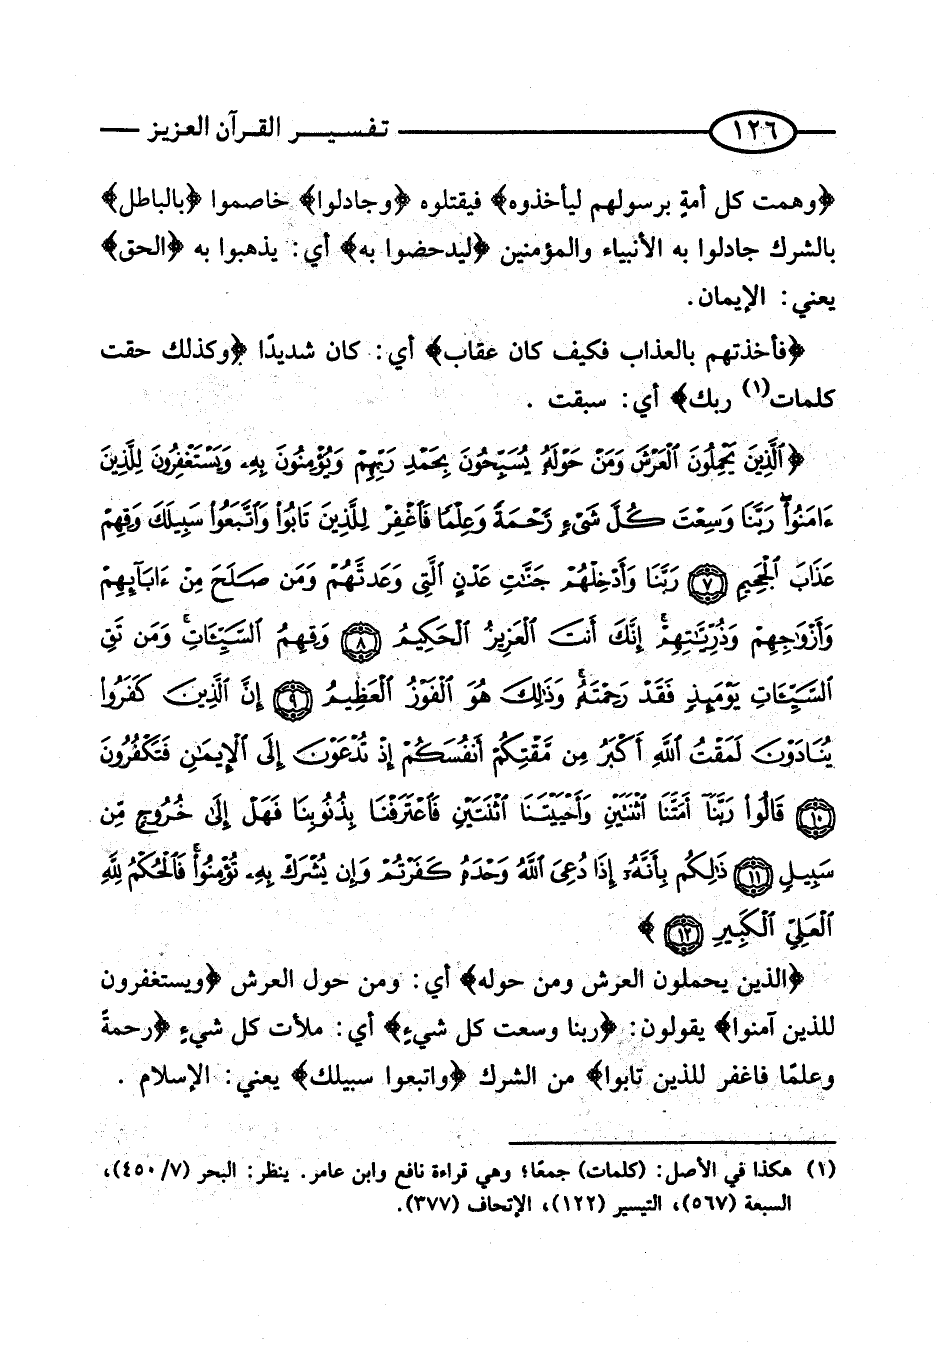 ١٢٦ تفسير القرآن العزيز
﴿وهمت كل أمةٍ برسولهم ليأخذوه﴾ فيقتلوه ﴿وجادلوا﴾ خاصموا ﴿بالباطل﴾
بالشرك جادلوا به الأنبياء والمؤمنين ﴿ليدحضوا به﴾ أي: يذهبوا به ﴿الحق﴾
يعني: الإيمان.
﴿فأخذتهم بالعذاب فكيف كان عقاب﴾ أي: كان شديدًا ﴿وكذلك حقت
كلمات(١) ربك﴾ أي: سبقت .
﴿ٱلَّذِينَ يَحْمِلُونَ ٱلْعَرْشَ وَمَنْ حَوْلَهُۥ يُسَبِّحُونَ بِحَمْدِ رَبِّهِمْ وَيُؤْمِنُونَ بِهِۦ وَيَسْتَغْفِرُونَ لِلَّذِينَ
ءَامَنُوا۟ۖ رَبَّنَا وَسِعْتَ كُلَّ شَىْءٍ رَّحْمَةً وَعِلْمًا فَٱغْفِرْ لِلَّذِينَ تَابُوا۟ وَٱتَّبَعُوا۟ سَبِيلَكَ وَقِهِمْ
عَذَابَ ٱلْجَحِيمِ ٧ رَبَّنَا وَأَدْخِلْهُمْ جَنَّٰتِ عَدْنٍ ٱلَّتِى وَعَدتَّهُمْ وَمَن صَلَحَ مِنْ ءَابَآئِهِمْ
وَأَزْوَٰجِهِمْ وَذُرِّيَّٰتِهِمْۚ إِنَّكَ أَنتَ ٱلْعَزِيزُ ٱلْحَكِيمُ ٨ وَقِهِمُ ٱلسَّيِّـَٔاتِۚ وَمَن تَقِ
ٱلسَّيِّـَٔاتِ يَوْمَئِذٍ فَقَدْ رَحِمْتَهُۥۚ وَذَٰلِكَ هُوَ ٱلْفَوْزُ ٱلْعَظِيمُ ٩ إِنَّ ٱلَّذِينَ كَفَرُوا۟
يُنَادَوْنَ لَمَقْتُ ٱللَّهِ أَكْبَرُ مِن مَّقْتِكُمْ أَنفُسَكُمْ إِذْ تُدْعَوْنَ إِلَى ٱلْإِيمَٰنِ فَتَكْفُرُونَ
١٠ قَالُوا۟ رَبَّنَآ أَمَتَّنَا ٱثْنَتَيْنِ وَأَحْيَيْتَنَا ٱثْنَتَيْنِ فَٱعْتَرَفْنَا بِذُنُوبِنَا فَهَلْ إِلَىٰ خُرُوجٍ مِّن
سَبِيلٍ ١١ ذَٰلِكُم بِأَنَّهُۥٓ إِذَا دُعِىَ ٱللَّهُ وَحْدَهُۥ كَفَرْتُمْ وَإِن يُشْرَكْ بِهِۦ تُؤْمِنُوا۟ۚ فَٱلْحُكْمُ لِلَّهِ
ٱلْعَلِىِّ ٱلْكَبِيرِ ١٢﴾
﴿الذين يحملون العرش ومن حوله﴾ أي: ومن حول العرش ﴿ويستغفرون
للذين آمنوا﴾ يقولون: ﴿ربنا وسعت كل شيءٍ﴾ أي: ملأت كل شيءٍ ﴿رحمةً
وعلمًا فاغفر للذين تابوا﴾ من الشرك ﴿واتبعوا سبيلك﴾ يعني: الإسلام .
(١) هكذا في الأصل: (كلمات) جمعًا؛ وهي قراءة نافع وابن عامر. ينظر: البحر (٤٥٠/٧)،
السبعة (٥٦٧)، التيسير (١٢٢)، الإتحاف (٣٧٧).